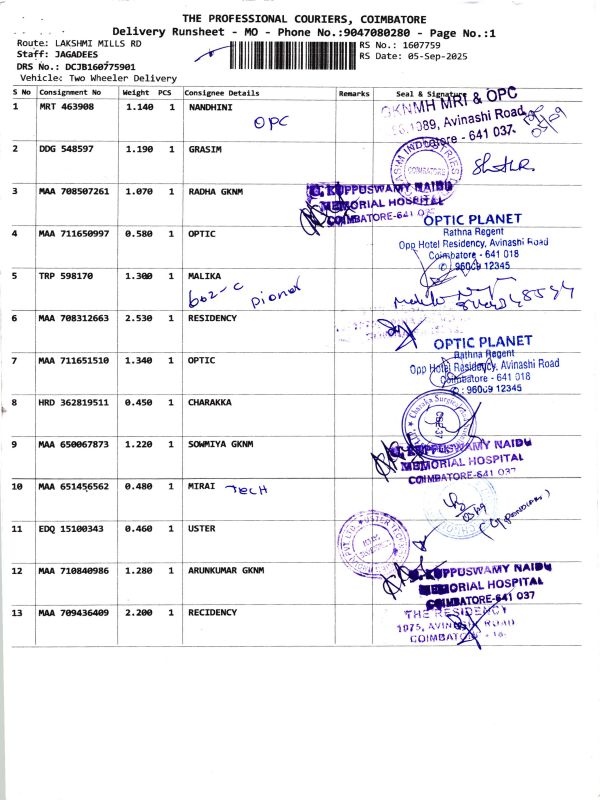 THE PROFESSIONAL COURIERS, COIMBATORE
Delivery Runsheet - MO - Phone No.:9047080280 - Page No.:1
Route: LAKSHMI MILLS RD
Staff: JAGADEES
DRS No.: DCJB160775901
Vehicle: Two Wheeler Delivery
RS No.: 1607759
RS Date: 05-Sep-2025
S No Consignment No Weight PCS Consignee Details Remarks Seal & Signature
1 MRT 463908 1.140 1 NANDHINI
OPC
GKNMH MRI & OPC
Avinashi Road
641 037
2 DDG 548597 1.190 1 GRASIM
COIMBATORE
3 MAA 708507261 1.070 1 RADHA GKNM
G. KUPPUSWAMY NAIDU
MEMORIAL HOSPITAL
COIMBATORE-641 037
4 MAA 711650997 0.580 1 OPTIC
OPTIC PLANET
Rathna Regent
Opp Hotel Residency, Avinashi Road
Coimbatore - 641 018
✆ : 96009 12345
5 TRP 598170 1.300 1 MALIKA
602-C Pioner
6 MAA 708312663 2.530 1 RESIDENCY
7 MAA 711651510 1.340 1 OPTIC
OPTIC PLANET
Rathna Regent
Opp Hotel Residency, Avinashi Road
Coimbatore - 641 018
✆ : 96009 12345
8 HRD 362819511 0.450 1 CHARAKKA
9 MAA 650067873 1.220 1 SOWMIYA GKNM
G. KUPPUSWAMY NAIDU
MEMORIAL HOSPITAL
COIMBATORE-641 037
10 MAA 651456562 0.480 1 MIRAI TECH
11 EDQ 15100343 0.460 1 USTER
12 MAA 710840986 1.280 1 ARUNKUMAR GKNM
G. KUPPUSWAMY NAIDU
MEMORIAL HOSPITAL
COIMBATORE-641 037
13 MAA 709436409 2.200 1 RECIDENCY
THE RESIDENCY
1075, AVINASHI ROAD